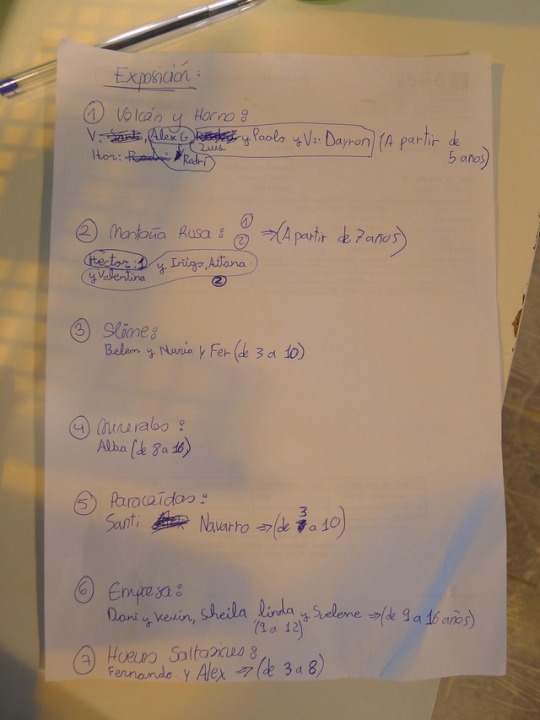 Exposición:
① Volcán y Horno:
V: Alex G y Paolo y V: Dayron (A partir de
Luis
Htor: Rodri 5 años)
② Montaña Rusa: ① ② ⇒ (A partir de 7 años)
Héctor: 1 y Iñigo, Aitana
y Valentina ②
③ Slime:
Belem y Nuria y Fer (de 3 a 10)
④ Minerales:
Alba (de 8 a 16)
⑤ Paracaídas:
Santi Navarro ⇒ (de 3 a 10)
⑥ Empresa:
Dani y Kevin, Sheila linda y Suelene ⇒ (de 9 a 16 años)
(9 a 12)
⑦ Huevos Saltarines:
Fernando y Alex ⇒ (de 3 a 8)